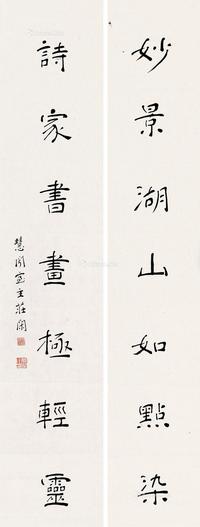 妙景湖山如點染
詩家書畫極輕靈
慧閒室主莊閑